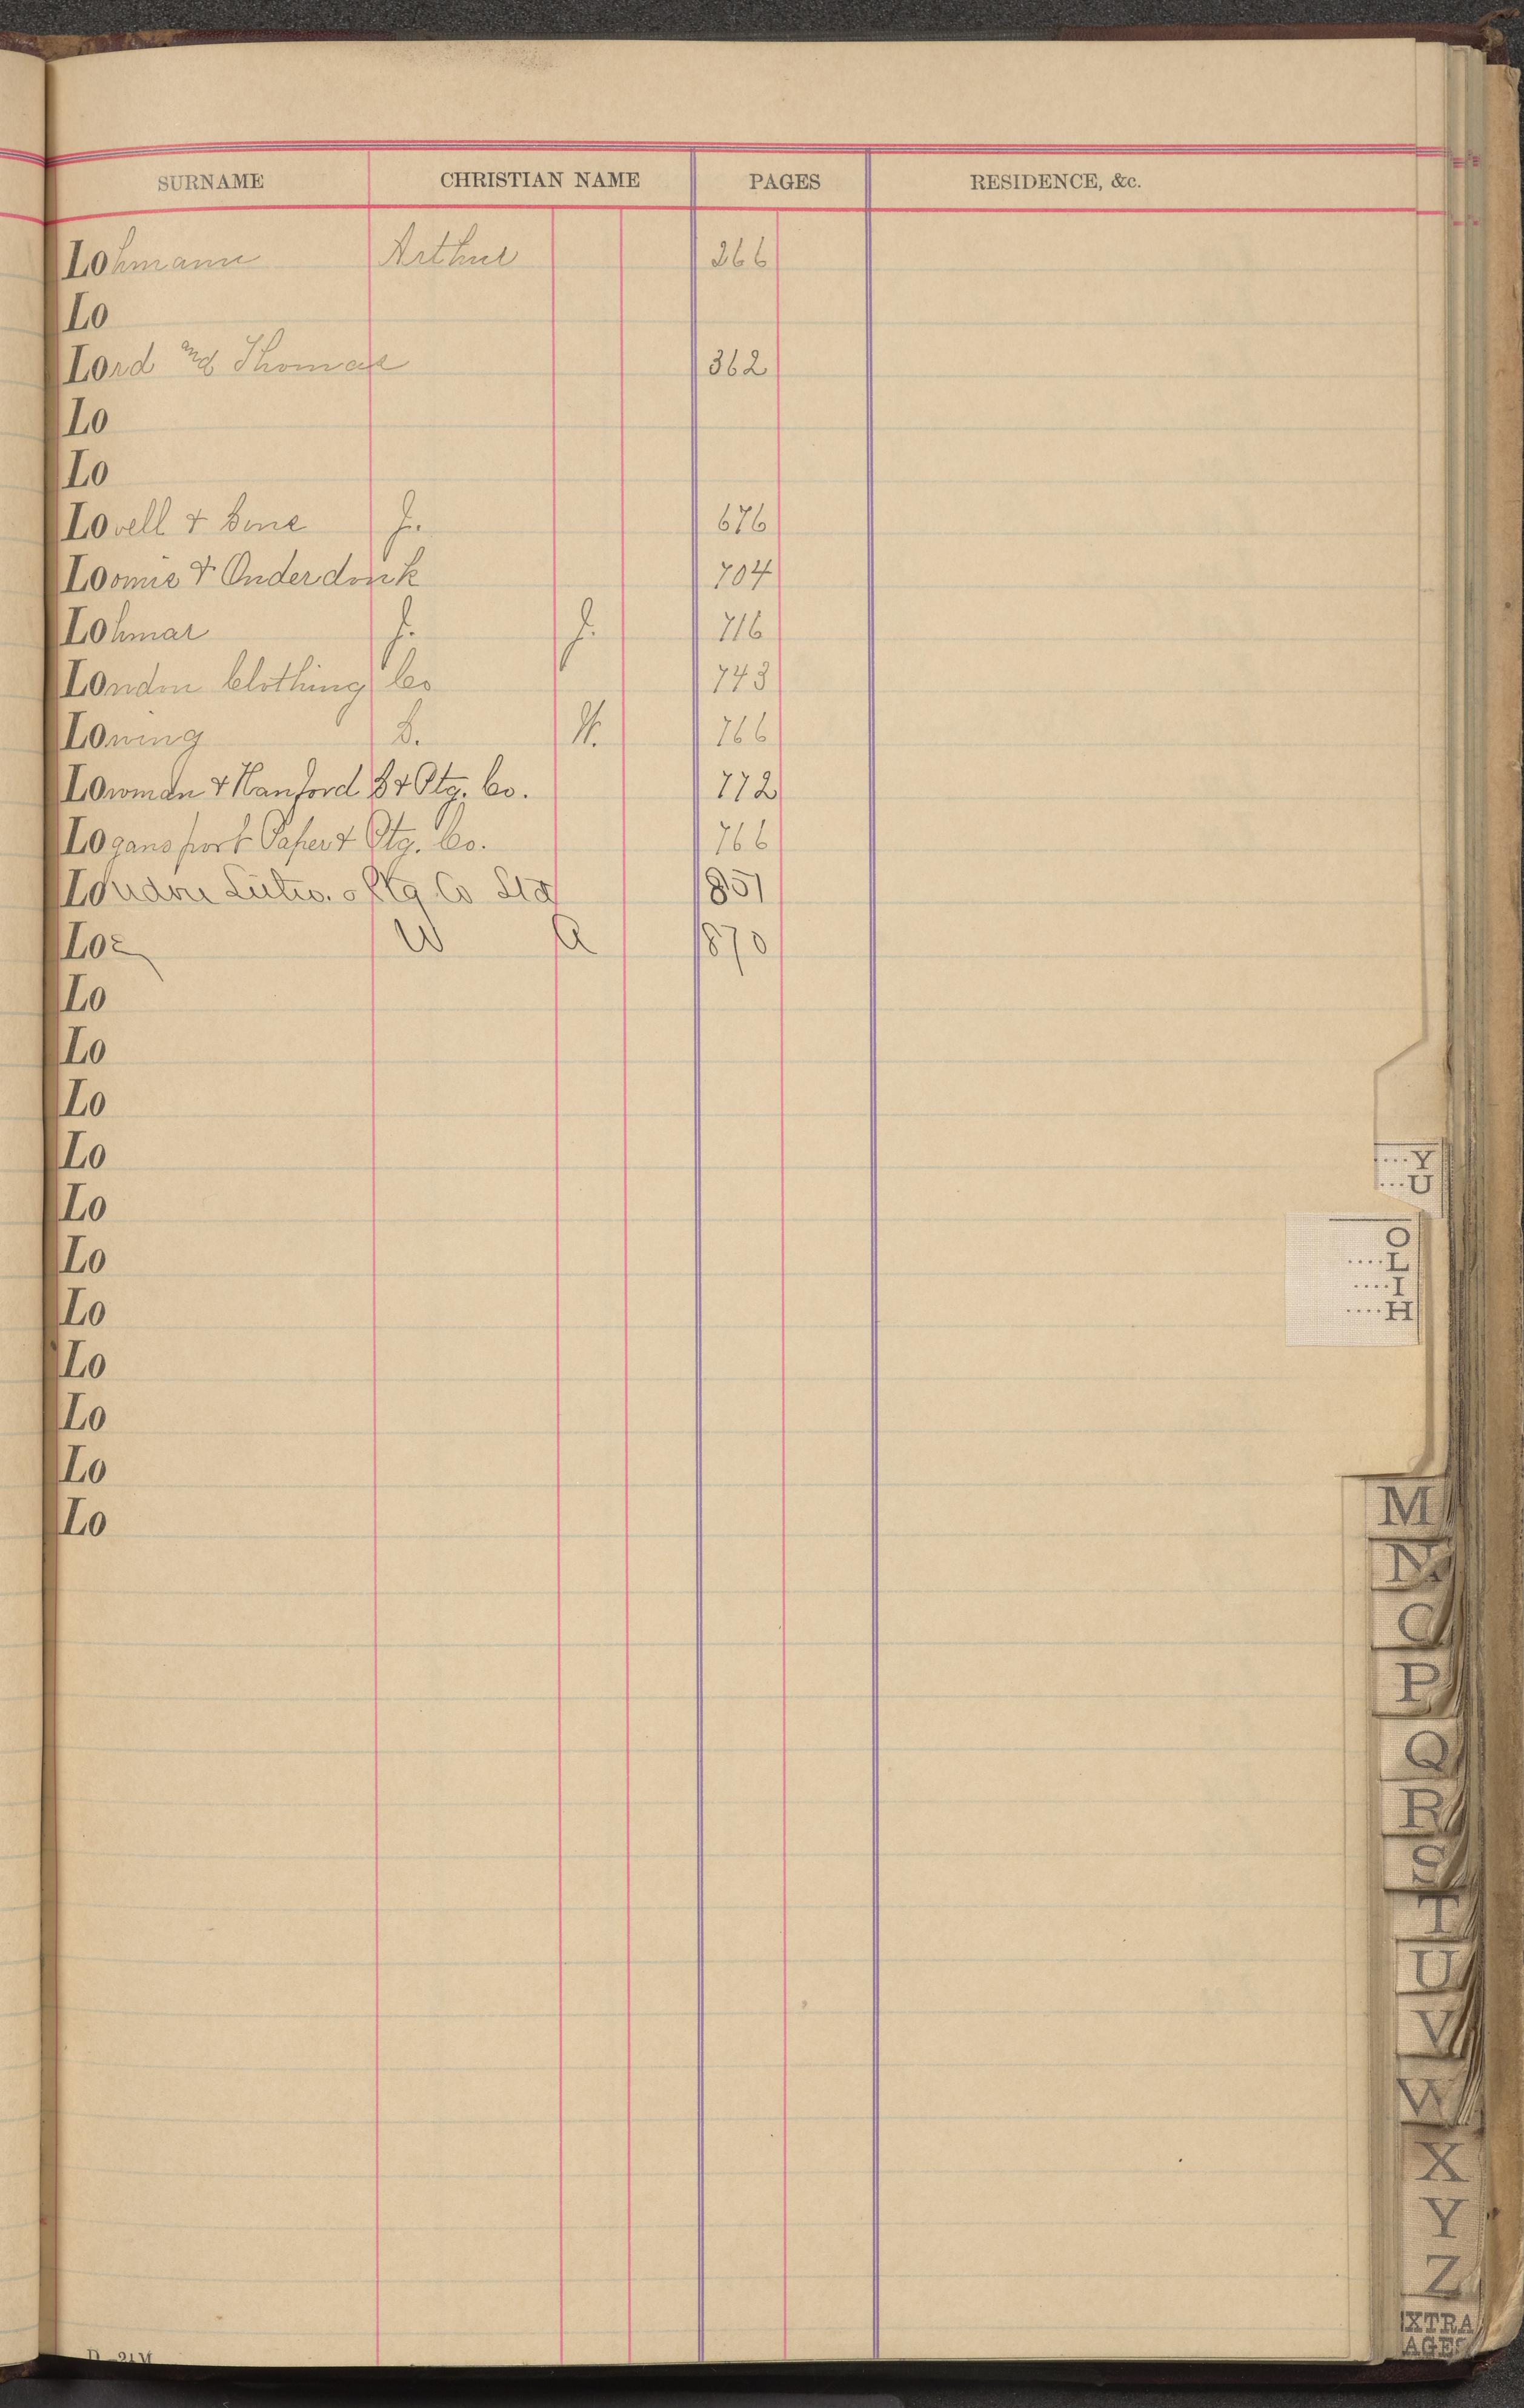 SURNAME CHRISTIAN NAME PAGES RESIDENCE, &c.
Lohmann Arthur 266
Lo
Lord and Thomas 362
Lo
Lo
Lovell & Sons J. 676
Loomis & Onderdonk 704
Lohmar J. J. 716
London Clothing Co 743
Loning S. W. 766
Lowman & Hanford S & Ptg. Co. 772
Logansport Paper & Ptg. Co. 766
London Litho. & Ptg Co Ltd 851
Loz W A 870
Lo
Lo
Lo
Lo
Lo
Lo
Lo
Lo
Lo
Lo
Lo
....Y
...U
O
....L
....I
....H
M
N
O
P
Q
R
S
T
U
V
W
X
Y
Z
EXTRA